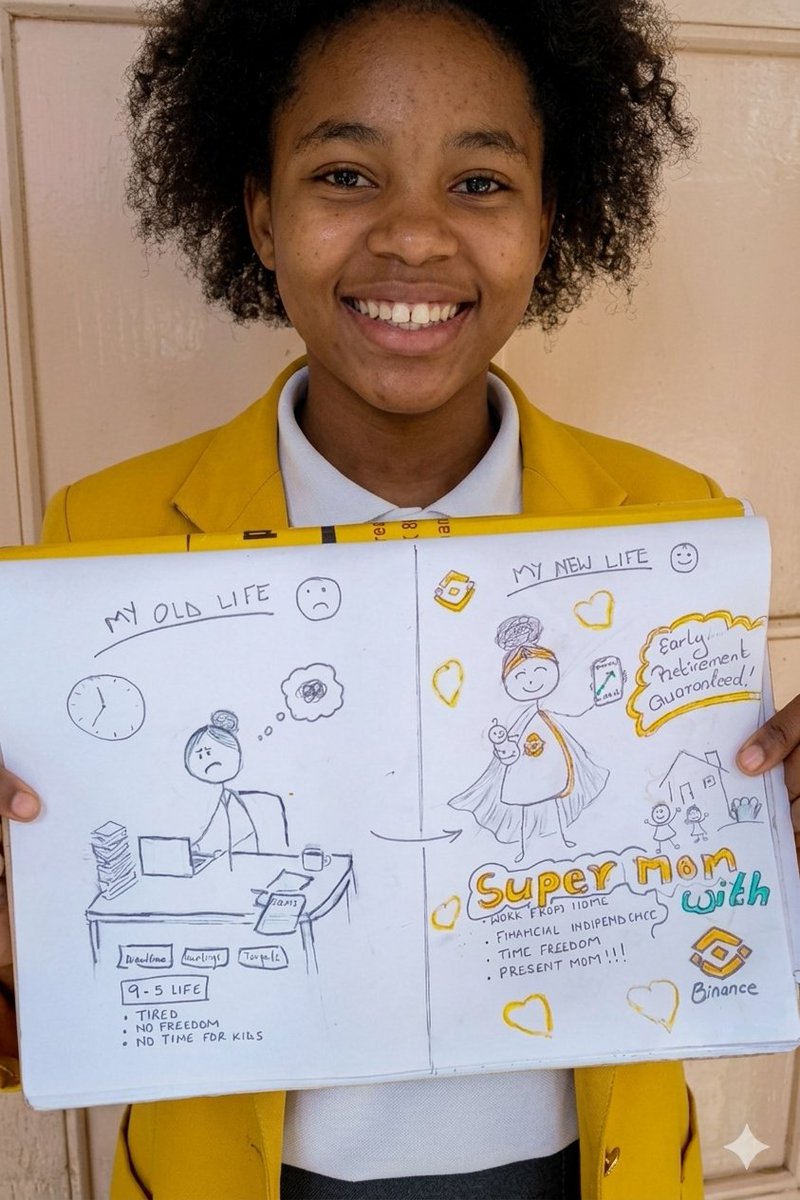 MY OLD LIFE
9-5 LIFE
• TIRED
• NO FREEDOM
• NO TIME FOR KIDS
MY NEW LIFE
Early
Retirement
Guaranteed!
Super mom
with
• WORK FROM HOME
• FINANCIAL INDIPENDCHCC
• TIME FREEDOM
• PRESENT MOM!!!
Binance